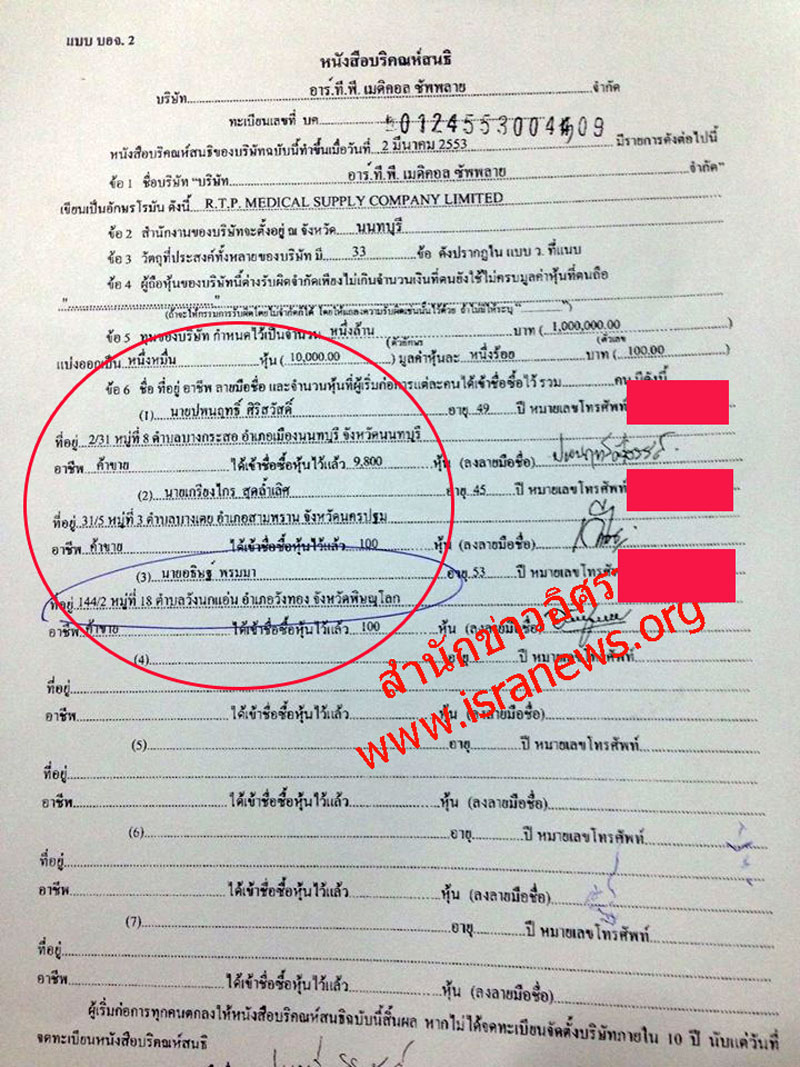 แบบ บอจ. 2
หนังสือบริคณห์สนธิ
บริษัท อาร์.ที.พี. เมดิคอล ซัพพลาย จำกัด
ทะเบียนเลขที่ บค.
หนังสือบริคณห์สนธิของบริษัทฉบับนี้ทำขึ้นเมื่อวันที่ 2 มีนาคม 2553 มีรายการดังต่อไปนี้
ข้อ 1 ชื่อบริษัท "บริษัท อาร์.ที.พี. เมดิคอล ซัพพลาย จำกัด"
เขียนเป็นอักษรโรมัน ดังนี้ R.T.P. MEDICAL SUPPLY COMPANY LIMITED
ข้อ 2 สำนักงานของบริษัทจะตั้งอยู่ ณ จังหวัด นนทบุรี
ข้อ 3 วัตถุที่ประสงค์ทั้งหลายของบริษัท มี 33 ข้อ ดังปรากฏใน แบบ ว. ที่แนบ
ข้อ 4 ผู้ถือหุ้นของบริษัทนี้ต่างรับผิดจำกัดเพียงไม่เกินจำนวนเงินที่ตนยังใช้ไม่ครบมูลค่าหุ้นที่ตนถือ
(ถ้าจะให้กรรมการรับผิดโดยไม่จำกัดก็ได้ โดยให้แถลงความรับผิดเช่นนั้นไว้ด้วย ถ้าไม่มีให้ระบุ "
ข้อ 5 ทุนของบริษัท กำหนดไว้เป็นจำนวน หนึ่งล้าน บาท ( 1,000,000.00 )
(ตัวอักษร) (ตัวเลข)
แบ่งออกเป็น หนึ่งหมื่น หุ้น ( 10,000.00 ) มูลค่าหุ้นละ หนึ่งร้อย บาท ( 100.00 )
ข้อ 6 ชื่อ ที่อยู่ อาชีพ ลายมือชื่อ และจำนวนหุ้นที่ผู้เริ่มก่อการแต่ละคนได้เข้าชื่อซื้อไว้ รวม คน มีดังนี้
(1) นายปพนฤทธิ์ ศิริสวัสดิ์ อายุ 49 ปี หมายเลขโทรศัพท์
ที่อยู่ 2/31 หมู่ที่ 8 ตำบลบางกระสอ อำเภอเมืองนนทบุรี จังหวัดนนทบุรี
อาชีพ ค้าขาย ได้เข้าชื่อซื้อหุ้นไว้แล้ว 9,800 หุ้น (ลงลายมือชื่อ)
(2) นายเกรียงไกร สุดล้ำเลิศ อายุ 45 ปี หมายเลขโทรศัพท์
ที่อยู่ 31/5 หมู่ที่ 3 ตำบลบางเตย อำเภอสามพราน จังหวัดนครปฐม
อาชีพ ค้าขาย ได้เข้าชื่อซื้อหุ้นไว้แล้ว 100 หุ้น (ลงลายมือชื่อ)
(3) นายอธิษฐ์ พรมมา อายุ 53 ปี หมายเลขโทรศัพท์
ที่อยู่ 144/2 หมู่ที่ 18 ตำบลวังนกแอ่น อำเภอวังทอง จังหวัดพิษณุโลก
อาชีพ ค้าขาย ได้เข้าชื่อซื้อหุ้นไว้แล้ว 100 หุ้น (ลงลายมือชื่อ)
สำนักข่าวอิศรา
www.isranews.org
(4) อายุ ปี หมายเลขโทรศัพท์
ที่อยู่
อาชีพ ได้เข้าชื่อซื้อหุ้นไว้แล้ว หุ้น (ลงลายมือชื่อ)
(5) อายุ ปี หมายเลขโทรศัพท์
ที่อยู่
อาชีพ ได้เข้าชื่อซื้อหุ้นไว้แล้ว หุ้น (ลงลายมือชื่อ)
(6) อายุ ปี หมายเลขโทรศัพท์
ที่อยู่
อาชีพ ได้เข้าชื่อซื้อหุ้นไว้แล้ว หุ้น (ลงลายมือชื่อ)
(7) อายุ ปี หมายเลขโทรศัพท์
ที่อยู่
อาชีพ ได้เข้าชื่อซื้อหุ้นไว้แล้ว หุ้น (ลงลายมือชื่อ)
ผู้เริ่มก่อการทุกคนตกลงให้หนังสือบริคณห์สนธิฉบับนี้สิ้นผล หากไม่ได้จดทะเบียนจัดตั้งบริษัทภายใน 10 ปี นับแต่วันที่
จดทะเบียนหนังสือบริคณห์สนธิ